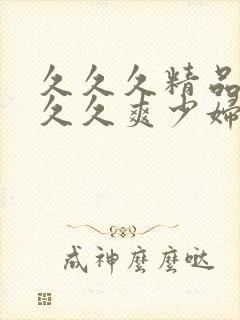 久久久精品
久久爽少婦
成神麼麼哒